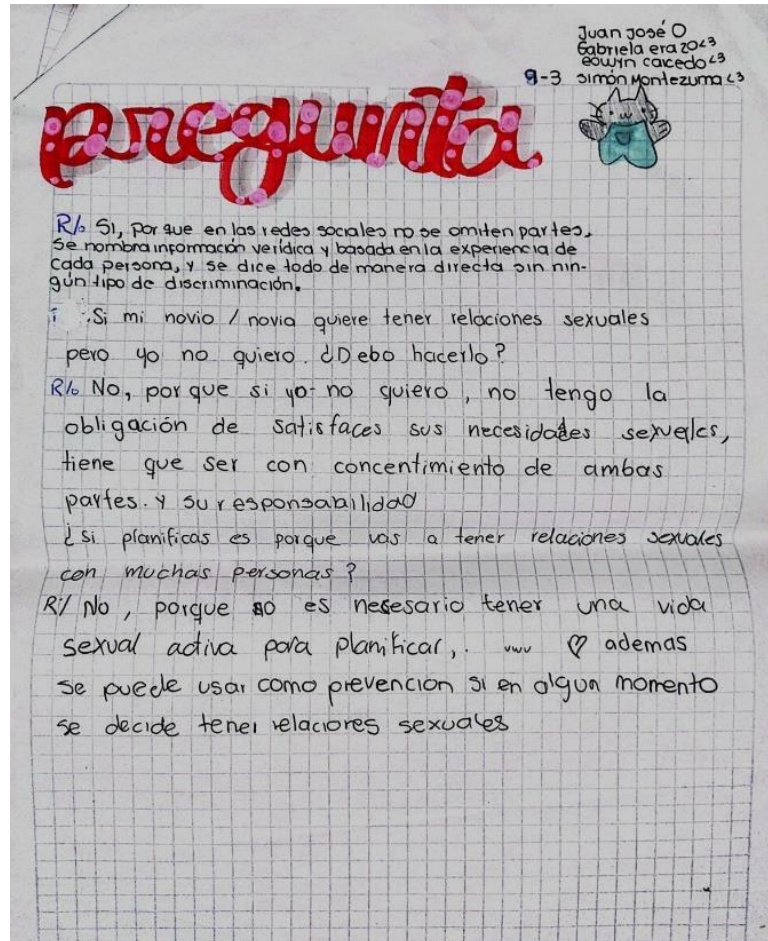 Juan José O
Gabriela erazo<3
edwyn caicedo<3
9-3 simón Montezuma<3
pregunta
R/o Si, por que en las redes sociales no se omiten partes,
Se nombra información verídica y basada en la experiencia de
Cada persona, y se dice todo de manera directa sin nin-
gún tipo de discriminación.
Si mi novio / novia quiere tener relaciones sexuales
pero yo no quiero. ¿Debo hacerlo?
R/o No, por que si yo no quiero, no tengo la
obligación de satisfaces sus necesidades sexuales,
tiene que ser con concentimiento de ambas
partes. y su responsabilidad
¿si planificas es porque vas a tener relaciones sexuales
con muchas personas?
R/ No, porque no es nesesario tener una vida
sexual activa para planificar,. uwu ♡ ademas
se puede usar como prevencion si en algun momento
se decide tener relaciores sexuales